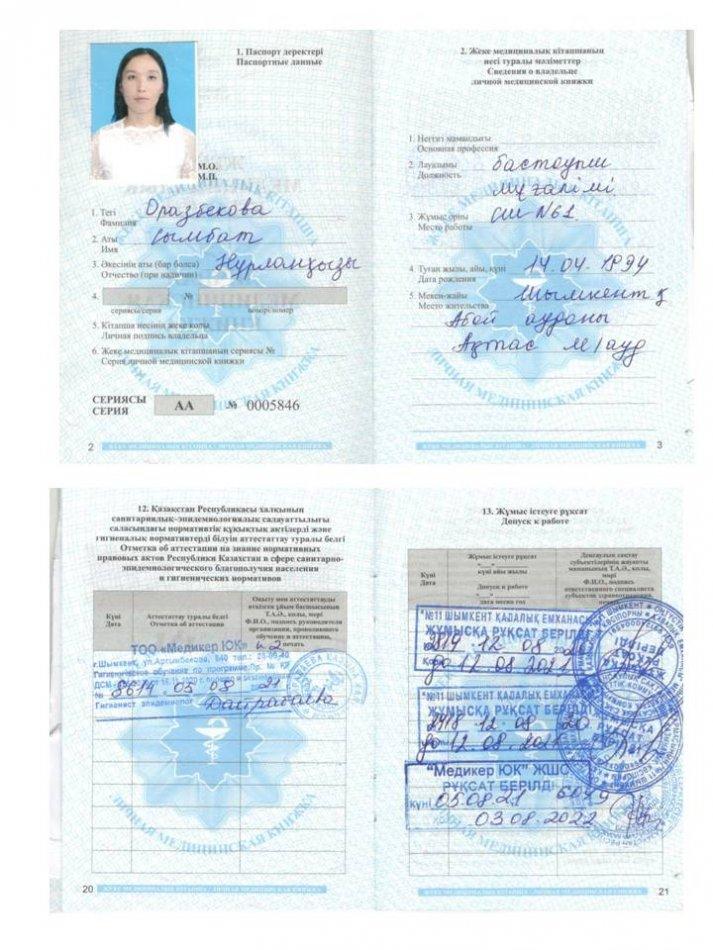 1. Паспорт деректері
Паспортные данные
М.О.
М.П.
1. Тегі
Фамилия
Оразбекова
2. Аты
Имя
Сымбат
3. Әкесінің аты (бар болса)
Отчество (при наличии)
Нұрланқызы
4.
№
сериясы/серия
номер/номер
5. Кітапша иесінің жеке қолы
Личная подпись владельца
6. Жеке медициналық кітапшаның сериясы №
Серия личной медицинской книжки
СЕРИЯСЫ
СЕРИЯ
АА
№ 0005846
2
ЖЕКЕ МЕДИЦИНАЛЫҚ КІТАПША / ЛИЧНАЯ МЕДИЦИНСКАЯ КНИЖКА
2. Жеке медициналық кітапшаның
иесі туралы мәліметтер
Сведения о владельце
личной медицинской книжки
1. Негізгі мамандығы
Основная профессия
2. Лауазымы
Должность
бастауыш
мұғалімі
3. Жұмыс орны
Место работы
СШ №61
4. Туған жылы, айы, күні
Дата рождения
14.04.1994
5. Мекен-жайы
Место жительства
Шымкент қ
Абай ауданы
Ақтас м/ауд
ЛИЧНАЯ МЕДИЦИНСКАЯ КНИЖКА
ЖЕКЕ МЕДИЦИНАЛЫҚ КІТАПША / ЛИЧНАЯ МЕДИЦИНСКАЯ КНИЖКА
3
12. Қазақстан Республикасы халқының
санитариялық-эпидемиологиялық салауаттылығы
саласындағы нормативтік құқықтық актілерді және
гигиеналық нормативтерді білуін аттестаттау туралы белгі
Отметка об аттестации на знание нормативных
правовых актов Республики Казахстан в сфере санитарно-
эпидемиологического благополучия населения
и гигиенических нормативов
Күні
Дата
Аттестаттау туралы белгі
Отметка об аттестации
Оқыту мен аттестаттауды
өткізген ұйым басшысының
Т.А.Ә., қолы, мөрі
Ф.И.О., подпись руководителя
организации, проводившего
обучение и аттестацию,
печать
ТОО «Медикер ЮК»
г.Шымкент, ул.Аргынбекова,
Гигиеническое обучение по программе
№ 8614 05 08 21
Гигиенист эпидемиолог
ЛИЧНАЯ МЕДИЦИНСКАЯ КНИЖКА
20
ЖЕКЕ МЕДИЦИНАЛЫҚ КІТАПША / ЛИЧНАЯ МЕДИЦИНСКАЯ КНИЖКА
13. Жұмыс істеуге рұқсат
Допуск к работе
Күні
Дата
Жұмыс істеуге рұқсат
күні айы жылы
Допуск к работе
дата месяц год
Денсаулық сақтау
субъектілерінің жауапты
маманының Т.А.Ә., қолы,
мөрі
Ф.И.О., подпись
ответственного специалиста
субъектов здравоохранения,
"№11 ШЫМКЕНТ ҚАЛАЛЫҚ ЕМХАНАСЫ"
ЖҰМЫСҚА РҰҚСАТ БЕРІЛДІ
12 08 2020
до 12.08.2021
"№11 ШЫМКЕНТ ҚАЛАЛЫҚ ЕМХАНАСЫ"
ЖҰМЫСҚА РҰҚСАТ БЕРІЛДІ
12 08 20
до 12.08.2021
"Медикер ЮК" ЖШС
РҰҚСАТ БЕРІЛДІ
Күні 05.08.21
03.08.2022
ЖЕКЕ МЕДИЦИНАЛЫҚ КІТАПША / ЛИЧНАЯ МЕДИЦИНСКАЯ КНИЖКА
21